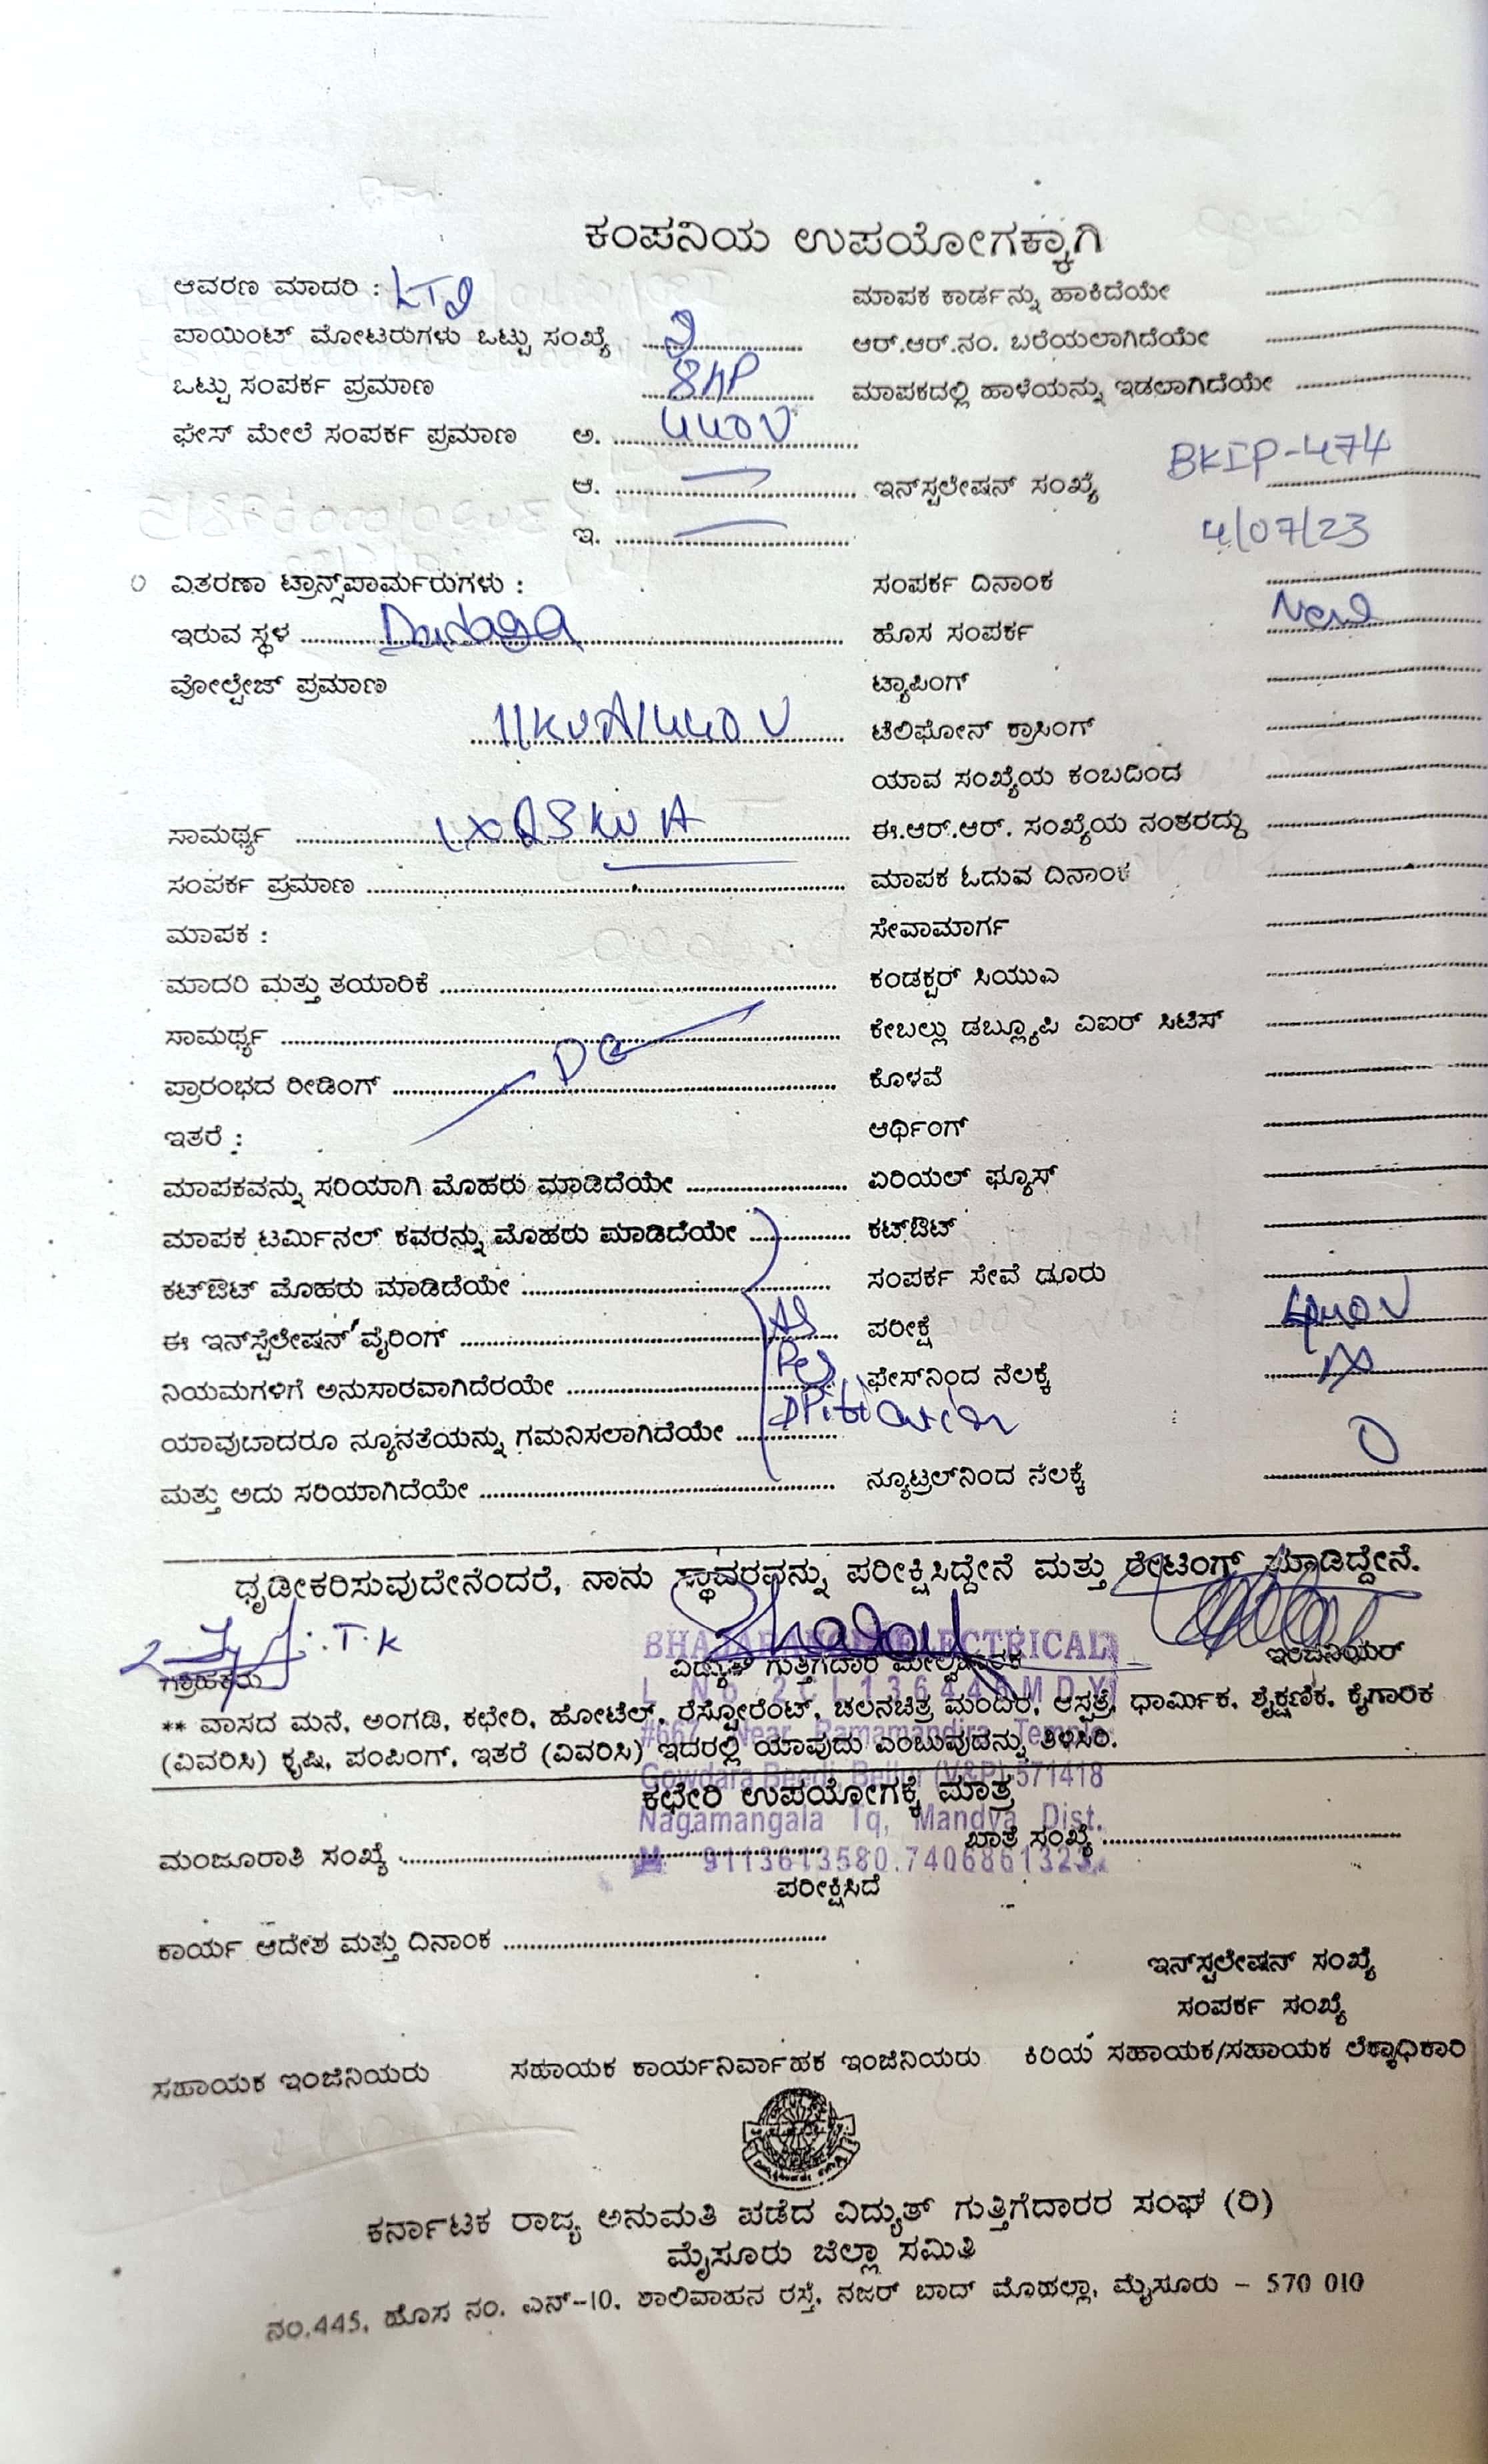 ಕಂಪನಿಯ ಉಪಯೋಗಕ್ಕಾಗಿ
ಆವರಣ ಮಾದರಿ : ಮಾಪಕ ಕಾರ್ಡನ್ನು ಹಾಕಿದೆಯೇ
ಪಾಯಿಂಟ್ ಮೋಟರುಗಳು ಒಟ್ಟು ಸಂಖ್ಯೆ ಆರ್.ಆರ್.ನಂ. ಬರೆಯಲಾಗಿದೆಯೇ
ಒಟ್ಟು ಸಂಪರ್ಕ ಪ್ರಮಾಣ 8HP ಮಾಪಕದಲ್ಲಿ ಹಾಳೆಯನ್ನು ಇಡಲಾಗಿದೆಯೇ
ಫೇಸ್ ಮೇಲೆ ಸಂಪರ್ಕ ಪ್ರಮಾಣ ಅ. 440V
ಆ. ಇನ್‌ಸ್ಟಲೇಷನ್ ಸಂಖ್ಯೆ BKIP-474
ಇ. 4/07/23
ವಿತರಣಾ ಟ್ರಾನ್ಸ್‌ಪಾರ್ಮರುಗಳು : ಸಂಪರ್ಕ ದಿನಾಂಕ
ಇರುವ ಸ್ಥಳ ಹೊಸ ಸಂಪರ್ಕ New
ವೋಲ್ಟೇಜ್ ಪ್ರಮಾಣ ಟ್ಯಾಪಿಂಗ್
11KVA/440V ಟೆಲಿಫೋನ್ ಕ್ರಾಸಿಂಗ್
ಯಾವ ಸಂಖ್ಯೆಯ ಕಂಬದಿಂದ
ಸಾಮರ್ಥ್ಯ ಈ.ಆರ್.ಆರ್. ಸಂಖ್ಯೆಯ ನಂತರದ್ದು
ಸಂಪರ್ಕ ಪ್ರಮಾಣ ಮಾಪಕ ಓದುವ ದಿನಾಂಕ
ಮಾಪಕ : ಸೇವಾಮಾರ್ಗ
ಮಾದರಿ ಮತ್ತು ತಯಾರಿಕೆ ಕಂಡಕ್ಟರ್ ಸಿಯುಎ
ಸಾಮರ್ಥ್ಯ ಕೇಬಲ್ಲು ಡಬ್ಲ್ಯೂಪಿ ವಿಐರ್ ಸಿಟಿಸ್
ಪ್ರಾರಂಭದ ರೀಡಿಂಗ್ ಕೊಳವೆ
ಇತರೆ : ಆರ್ಥಿಂಗ್
ಮಾಪಕವನ್ನು ಸರಿಯಾಗಿ ಮೊಹರು ಮಾಡಿದೆಯೇ ಏರಿಯಲ್ ಫ್ಯೂಸ್
ಮಾಪಕ ಟರ್ಮಿನಲ್ ಕವರನ್ನು ಮೊಹರು ಮಾಡಿದೆಯೇ ಕಟ್‌ಔಟ್
ಕಟ್‌ಔಟ್ ಮೊಹರು ಮಾಡಿದೆಯೇ ಸಂಪರ್ಕ ಸೇವೆ ದೂರು
ಈ ಇನ್‌ಸ್ಟಲೇಷನ್ ವೈರಿಂಗ್ ಪರೀಕ್ಷೆ 440V
ನಿಯಮಗಳಿಗೆ ಅನುಸಾರವಾಗಿದೆರಯೇ ಫೇಸ್‌ನಿಂದ ನೆಲಕ್ಕೆ
ಯಾವುದಾದರೂ ನ್ಯೂನತೆಯನ್ನು ಗಮನಿಸಲಾಗಿದೆಯೇ
ಮತ್ತು ಅದು ಸರಿಯಾಗಿದೆಯೇ ನ್ಯೂಟ್ರಲ್‌ನಿಂದ ನೆಲಕ್ಕೆ 0
ಧೃಡೀಕರಿಸುವುದೇನೆಂದರೆ, ನಾನು ಸ್ಥಾವರವನ್ನು ಪರೀಕ್ಷಿಸಿದ್ದೇನೆ ಮತ್ತು ರೇಟಿಂಗ್ ಮಾಡಿದ್ದೇನೆ.
BHAJARANGI ELECTRICAL
ಗ್ರಾಹಕರು ವಿದ್ಯುತ್ ಗುತ್ತಿಗೆದಾರ ಮೇಲ್ವಿಚಾರಕ ಇಂಜಿನಿಯರ್
** ವಾಸದ ಮನೆ, ಅಂಗಡಿ, ಕಛೇರಿ, ಹೋಟೆಲ್, ರೆಸ್ಟೋರೆಂಟ್, ಚಲನಚಿತ್ರ ಮಂದಿರ, ಆಸ್ಪತ್ರೆ, ಧಾರ್ಮಿಕ, ಶೈಕ್ಷಣಿಕ, ಕೈಗಾರಿಕ
#667, Near Ramamandira Temple
(ವಿವರಿಸಿ) ಕೃಷಿ, ಪಂಪಿಂಗ್, ಇತರೆ (ವಿವರಿಸಿ) ಇದರಲ್ಲಿ ಯಾವುದು ಎಂಬುವುದನ್ನು ತಿಳಿಸಿರಿ.
Gowdara Beedi, Bellur (V&P) 571418
ಕಛೇರಿ ಉಪಯೋಗಕ್ಕೆ ಮಾತ್ರ
Nagamangala Tq, Mandya Dist.
ಮಂಜೂರಾತಿ ಸಂಖ್ಯೆ ಖಾತೆ ಸಂಖ್ಯೆ
9113613580.7406861323
ಪರೀಕ್ಷಿಸಿದೆ
ಕಾರ್ಯ ಆದೇಶ ಮತ್ತು ದಿನಾಂಕ
ಇನ್‌ಸ್ಟಲೇಷನ್ ಸಂಖ್ಯೆ
ಸಂಪರ್ಕ ಸಂಖ್ಯೆ
ಸಹಾಯಕ ಇಂಜಿನಿಯರು ಸಹಾಯಕ ಕಾರ್ಯನಿರ್ವಾಹಕ ಇಂಜಿನಿಯರು ಕಿರಿಯ ಸಹಾಯಕ/ಸಹಾಯಕ ಲೆಕ್ಕಾಧಿಕಾರಿ
ಕರ್ನಾಟಕ ರಾಜ್ಯ ಅನುಮತಿ ಪಡೆದ ವಿದ್ಯುತ್ ಗುತ್ತಿಗೆದಾರರ ಸಂಘ (ರಿ)
ಮೈಸೂರು ಜಿಲ್ಲಾ ಸಮಿತಿ
ನಂ.445, ಹೊಸ ನಂ. ಎನ್-10, ಶಾಲಿವಾಹನ ರಸ್ತೆ, ನಜರ್ ಬಾದ್ ಮೊಹಲ್ಲಾ, ಮೈಸೂರು – 570 010